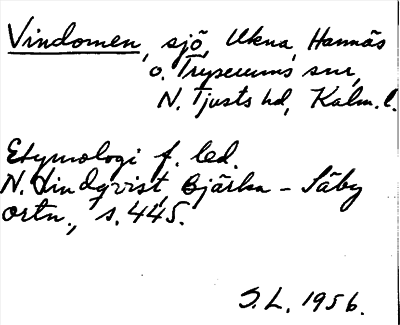 Vindomen, sjö, Ukna, Hannäs
o. Tryserums snr,
N. Tjusts hd, Kalm. l.
Etymologi f. led.
N. Lindqvist, Bjärka - Säby
ortn., s. 445.
S.L. 1956.